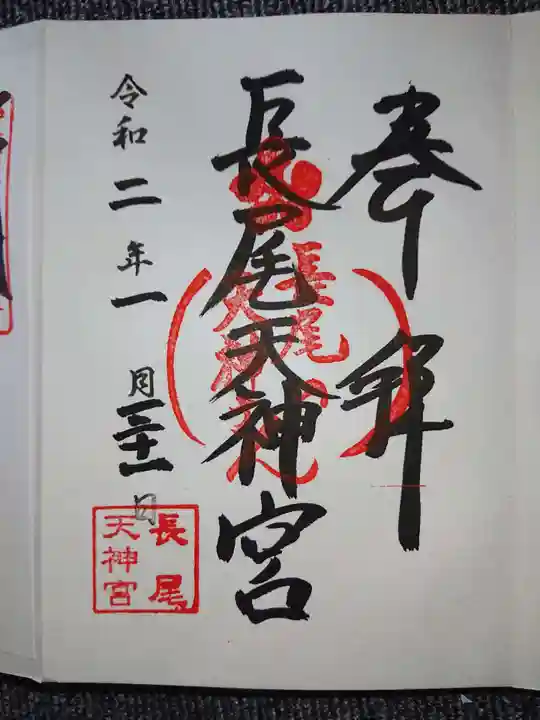 奉拝
長尾天神宮
長尾
天神さん
令和二年一月三十一日
長尾
天神宮